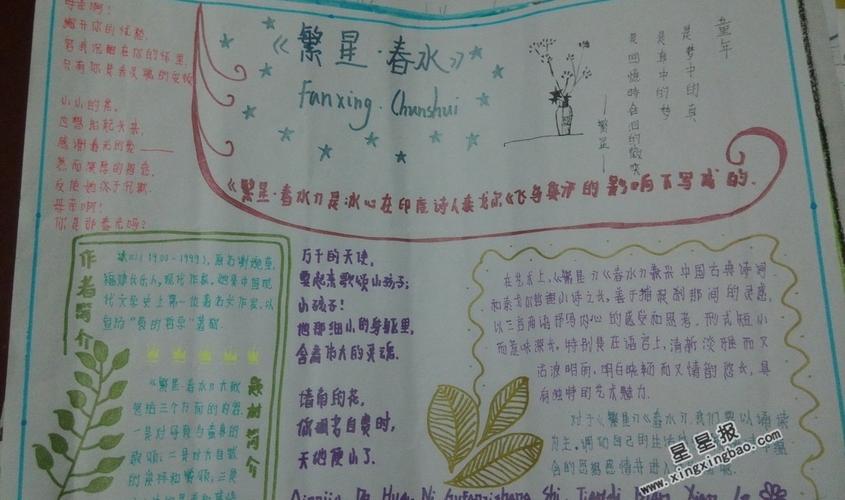 母亲啊!
撇开你的忧愁
容我沉酣在你的怀里
只有你是我灵魂的安顿
小小的花,
也想抬起头来,
感谢春光的爱——
然而深厚的恩慈,
反使她终于沉默。
母亲啊!
你是那春光吗?
《繁星·春水》
Fanxing·Chunshui
童年
是梦中的真
是真中的梦
是回忆时含泪的微笑
——繁星
《繁星·春水》是冰心在印度诗人泰戈尔《飞鸟集》的影响下写成的.
作者简介
冰心(1900-1999),原名谢婉莹,
福建长乐人,现代作家,她是中国现
代文学史上第一位著名女作家,以
宣扬“爱的哲学”著称.
题材简介
《繁星·春水》大致
包括三个方面的内容.
一是对母爱与童真的
歌颂;二是对大自然
的崇拜和赞颂;三是
万千的天使,
要起来歌颂小孩子;
小孩子!
他那细小的身躯里,
含着伟大的灵魂.
墙角的花,
你孤芳自赏时,
天地便小了.
在艺术上,《繁星》《春水》兼采中国古典诗词
和泰戈尔哲理小诗之长,善于捕捉刹那间的灵感,
以三言两语抒写内心的感受和思考,形式短小
而意味深长.特别是在语言上,清新淡雅而又
晶莹明丽,明白晓畅而又情韵悠长,具
有独特的艺术魅力.
对于《繁星》《春水》,我们要以诵读
为主,调动自己的生活
含的思想感情并进入
星星报
www.xingxingbao.com